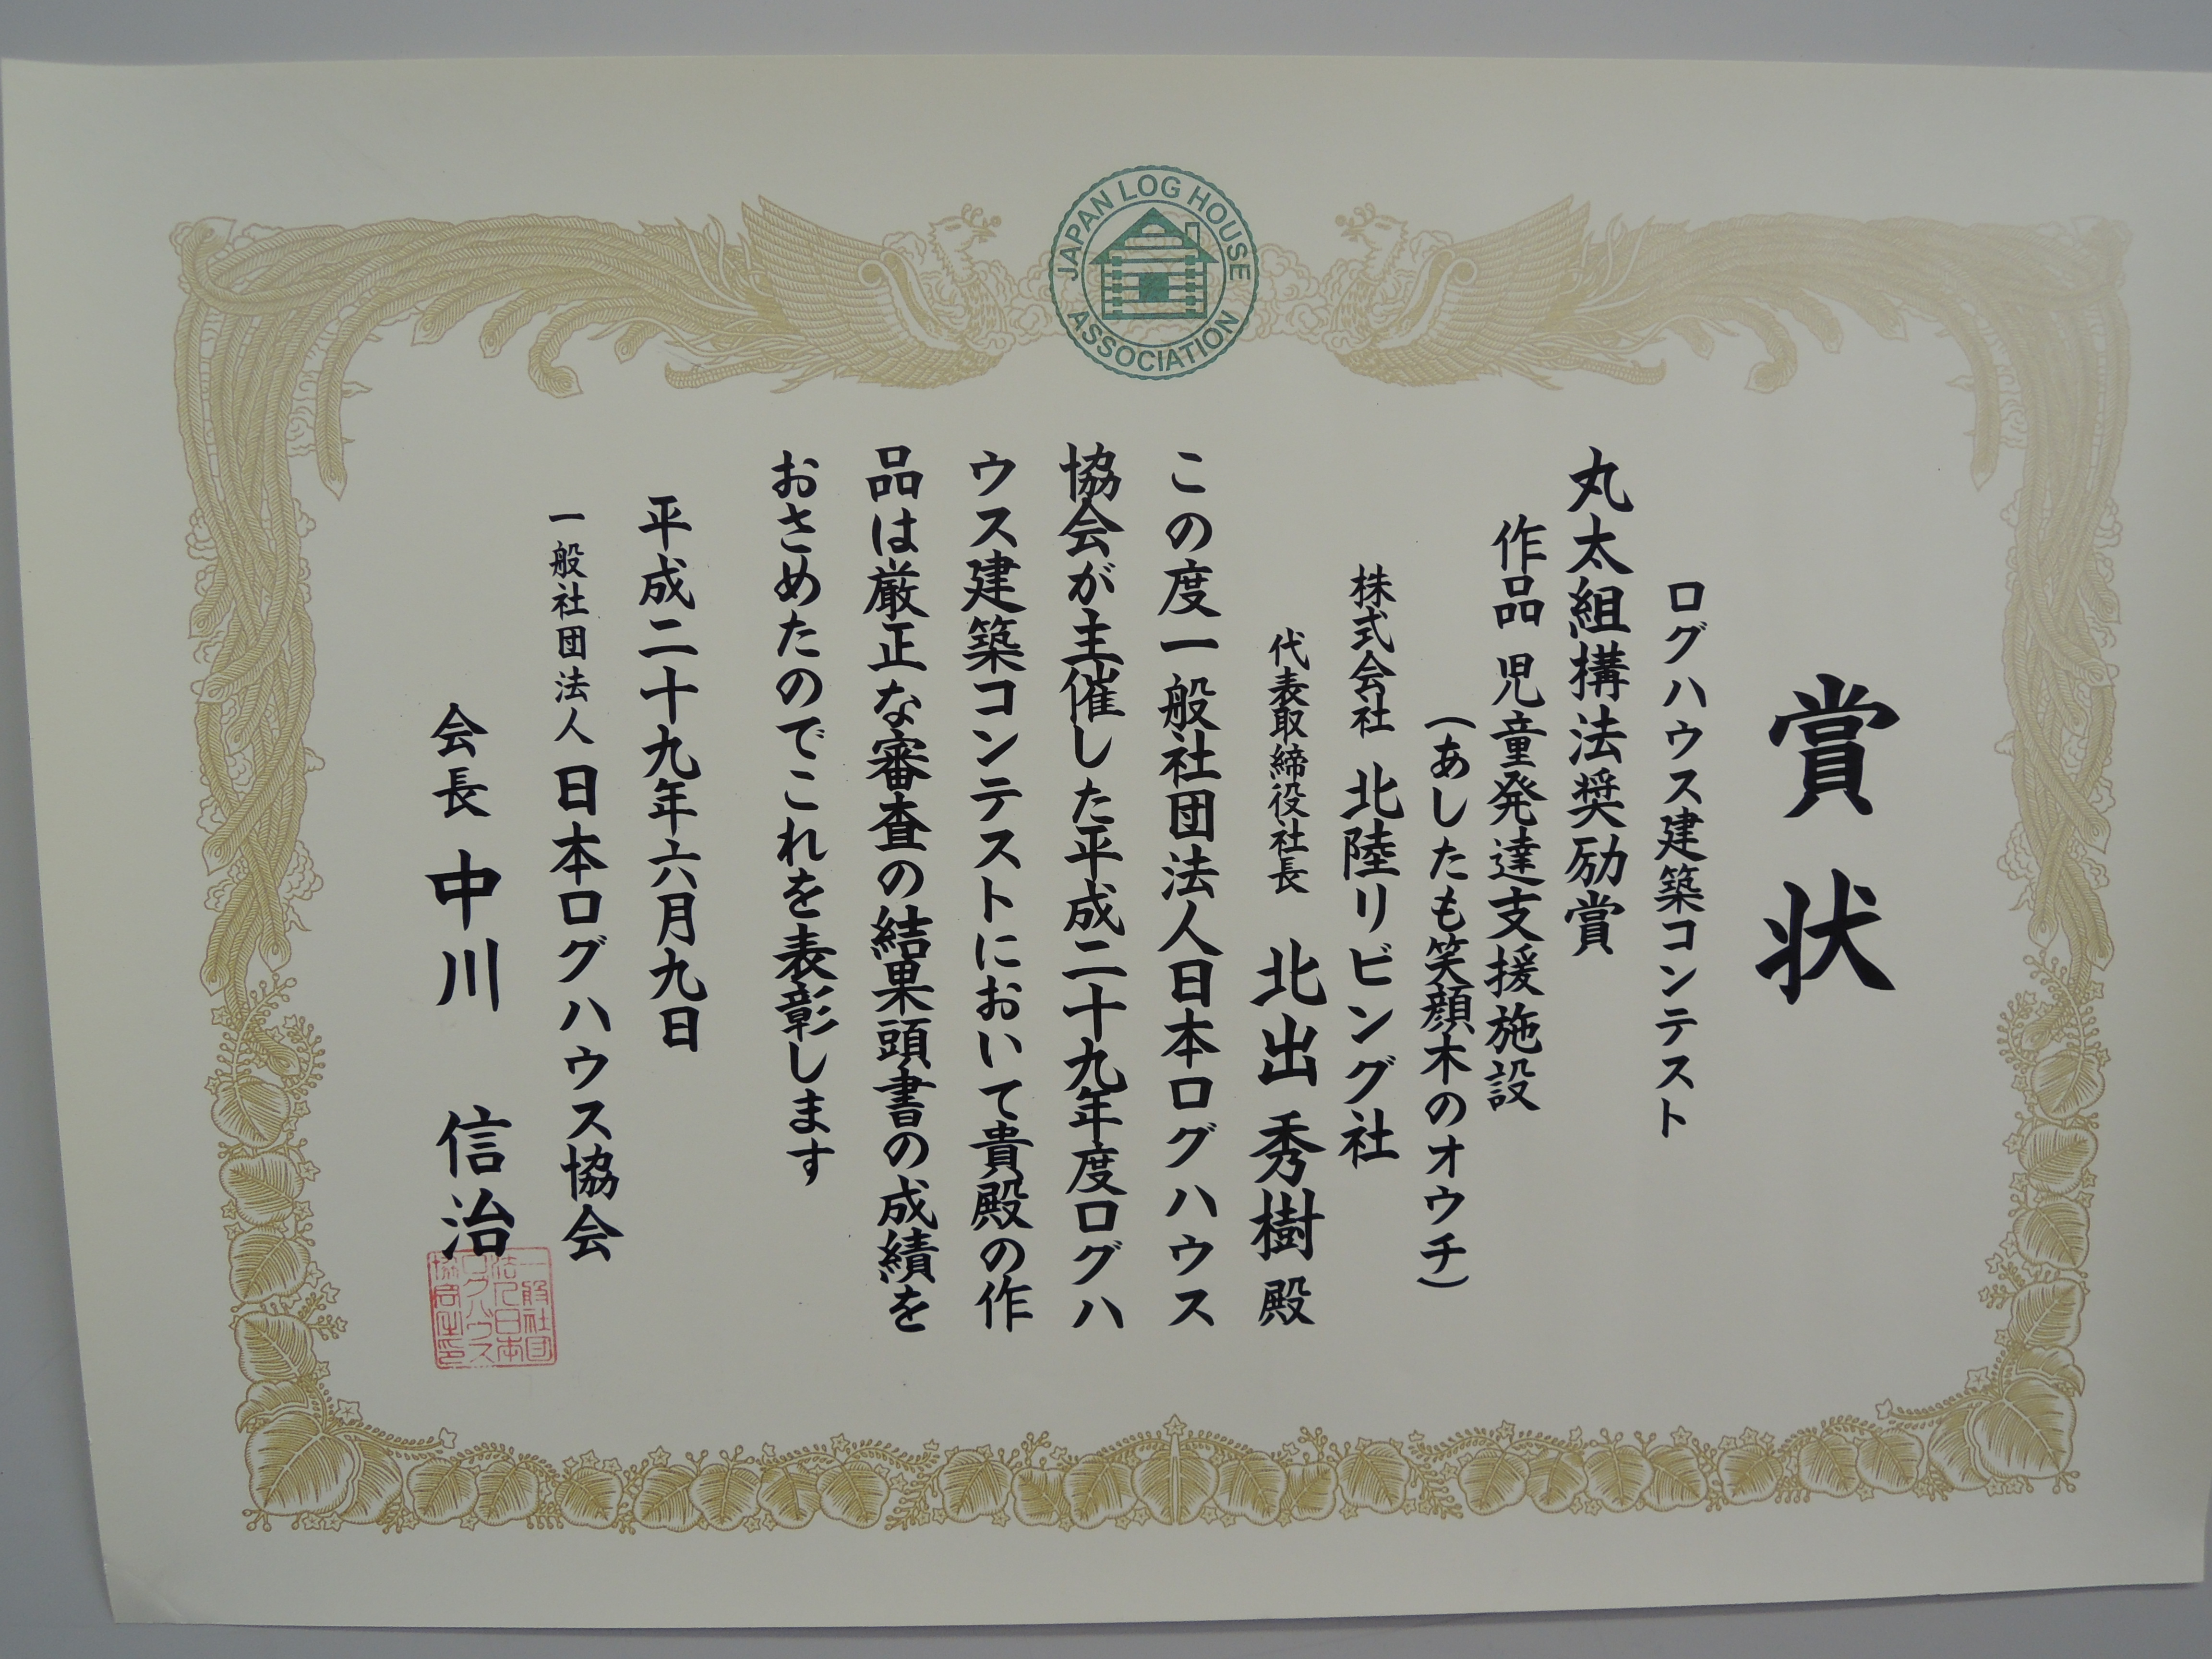 JAPAN LOG HOUSE ASSOCIATION
賞状
ログハウス建築コンテスト
丸太組構法奨励賞
作品 児童発達支援施設
(あしたも笑顔木のオウチ)
株式会社 北陸リビング社
代表取締役社長 北出 秀樹 殿
この度一般社団法人日本ログハウス
協会が主催した平成二十九年度ログハ
ウス建築コンテストにおいて貴殿の作
品は厳正な審査の結果頭書の成績を
おさめたのでこれを表彰します
平成二十九年六月九日
一般社団法人 日本ログハウス協会
会長 中川 信治
一般社団
法人日本
ログハウス
協会之印